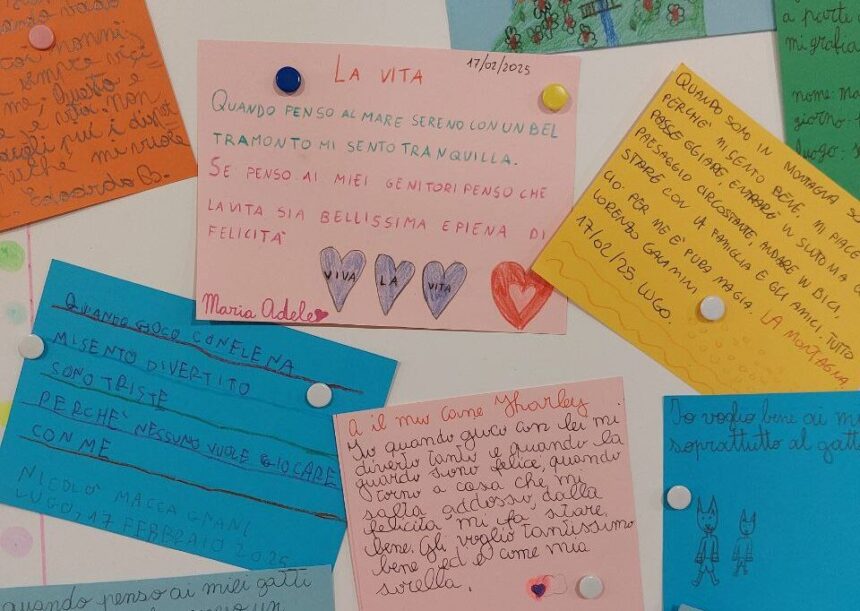 LA VITA
17/02/2025
QUANDO PENSO AL MARE SERENO CON UN BEL
TRAMONTO MI SENTO TRANQUILLA.
SE PENSO AI MIEI GENITORI PENSO CHE
LA VITA SIA BELLISSIMA E PIENA DI
FELICITA'
VIVA LA VITA
Maria Adele
nonni,
sempre
me; Questo è
vita. Non
i
perché mi
Edoardo B.
a parte
mi grafica
nome: Ma
giorno:
luogo:
QUANDO SONO IN MONTAGNA SO
PERCHE' MI SENTO BENE, MI PIACE
PASSEGGIARE, ENTRARE IN SINTONIA C
PAESAGGIO CIRCOSTANTE, ANDARE IN BICI,
STARE CON LA FAMIGLIA E GLI AMICI. TUTTO
CIO' PER ME E' PURA MAGIA. LA MONTAGNA
LORENZO
17/02/25 LUGO.
QUANDO GIOCO CON ELENA
MI SENTO DIVERTITO
SONO TRISTE
PERCHE' NESSUNO VUOLE GIOCARE
CON ME
NICOLO' MACCAGNANI
LUGO, 17 FEBBRAIO 2025
A il mio cane Jharley
Io quando gioco con lei mi
diverto tanto e quando la
guardo sono felice, quando
torno a casa che mi
salta addosso dalla
felicita mi fa stare
bene. Gli voglio tantissimo
bene ed è come mia
sorella.
Io voglio bene ai mi
soprattutto al gatt
quando penso ai miei gatti
un